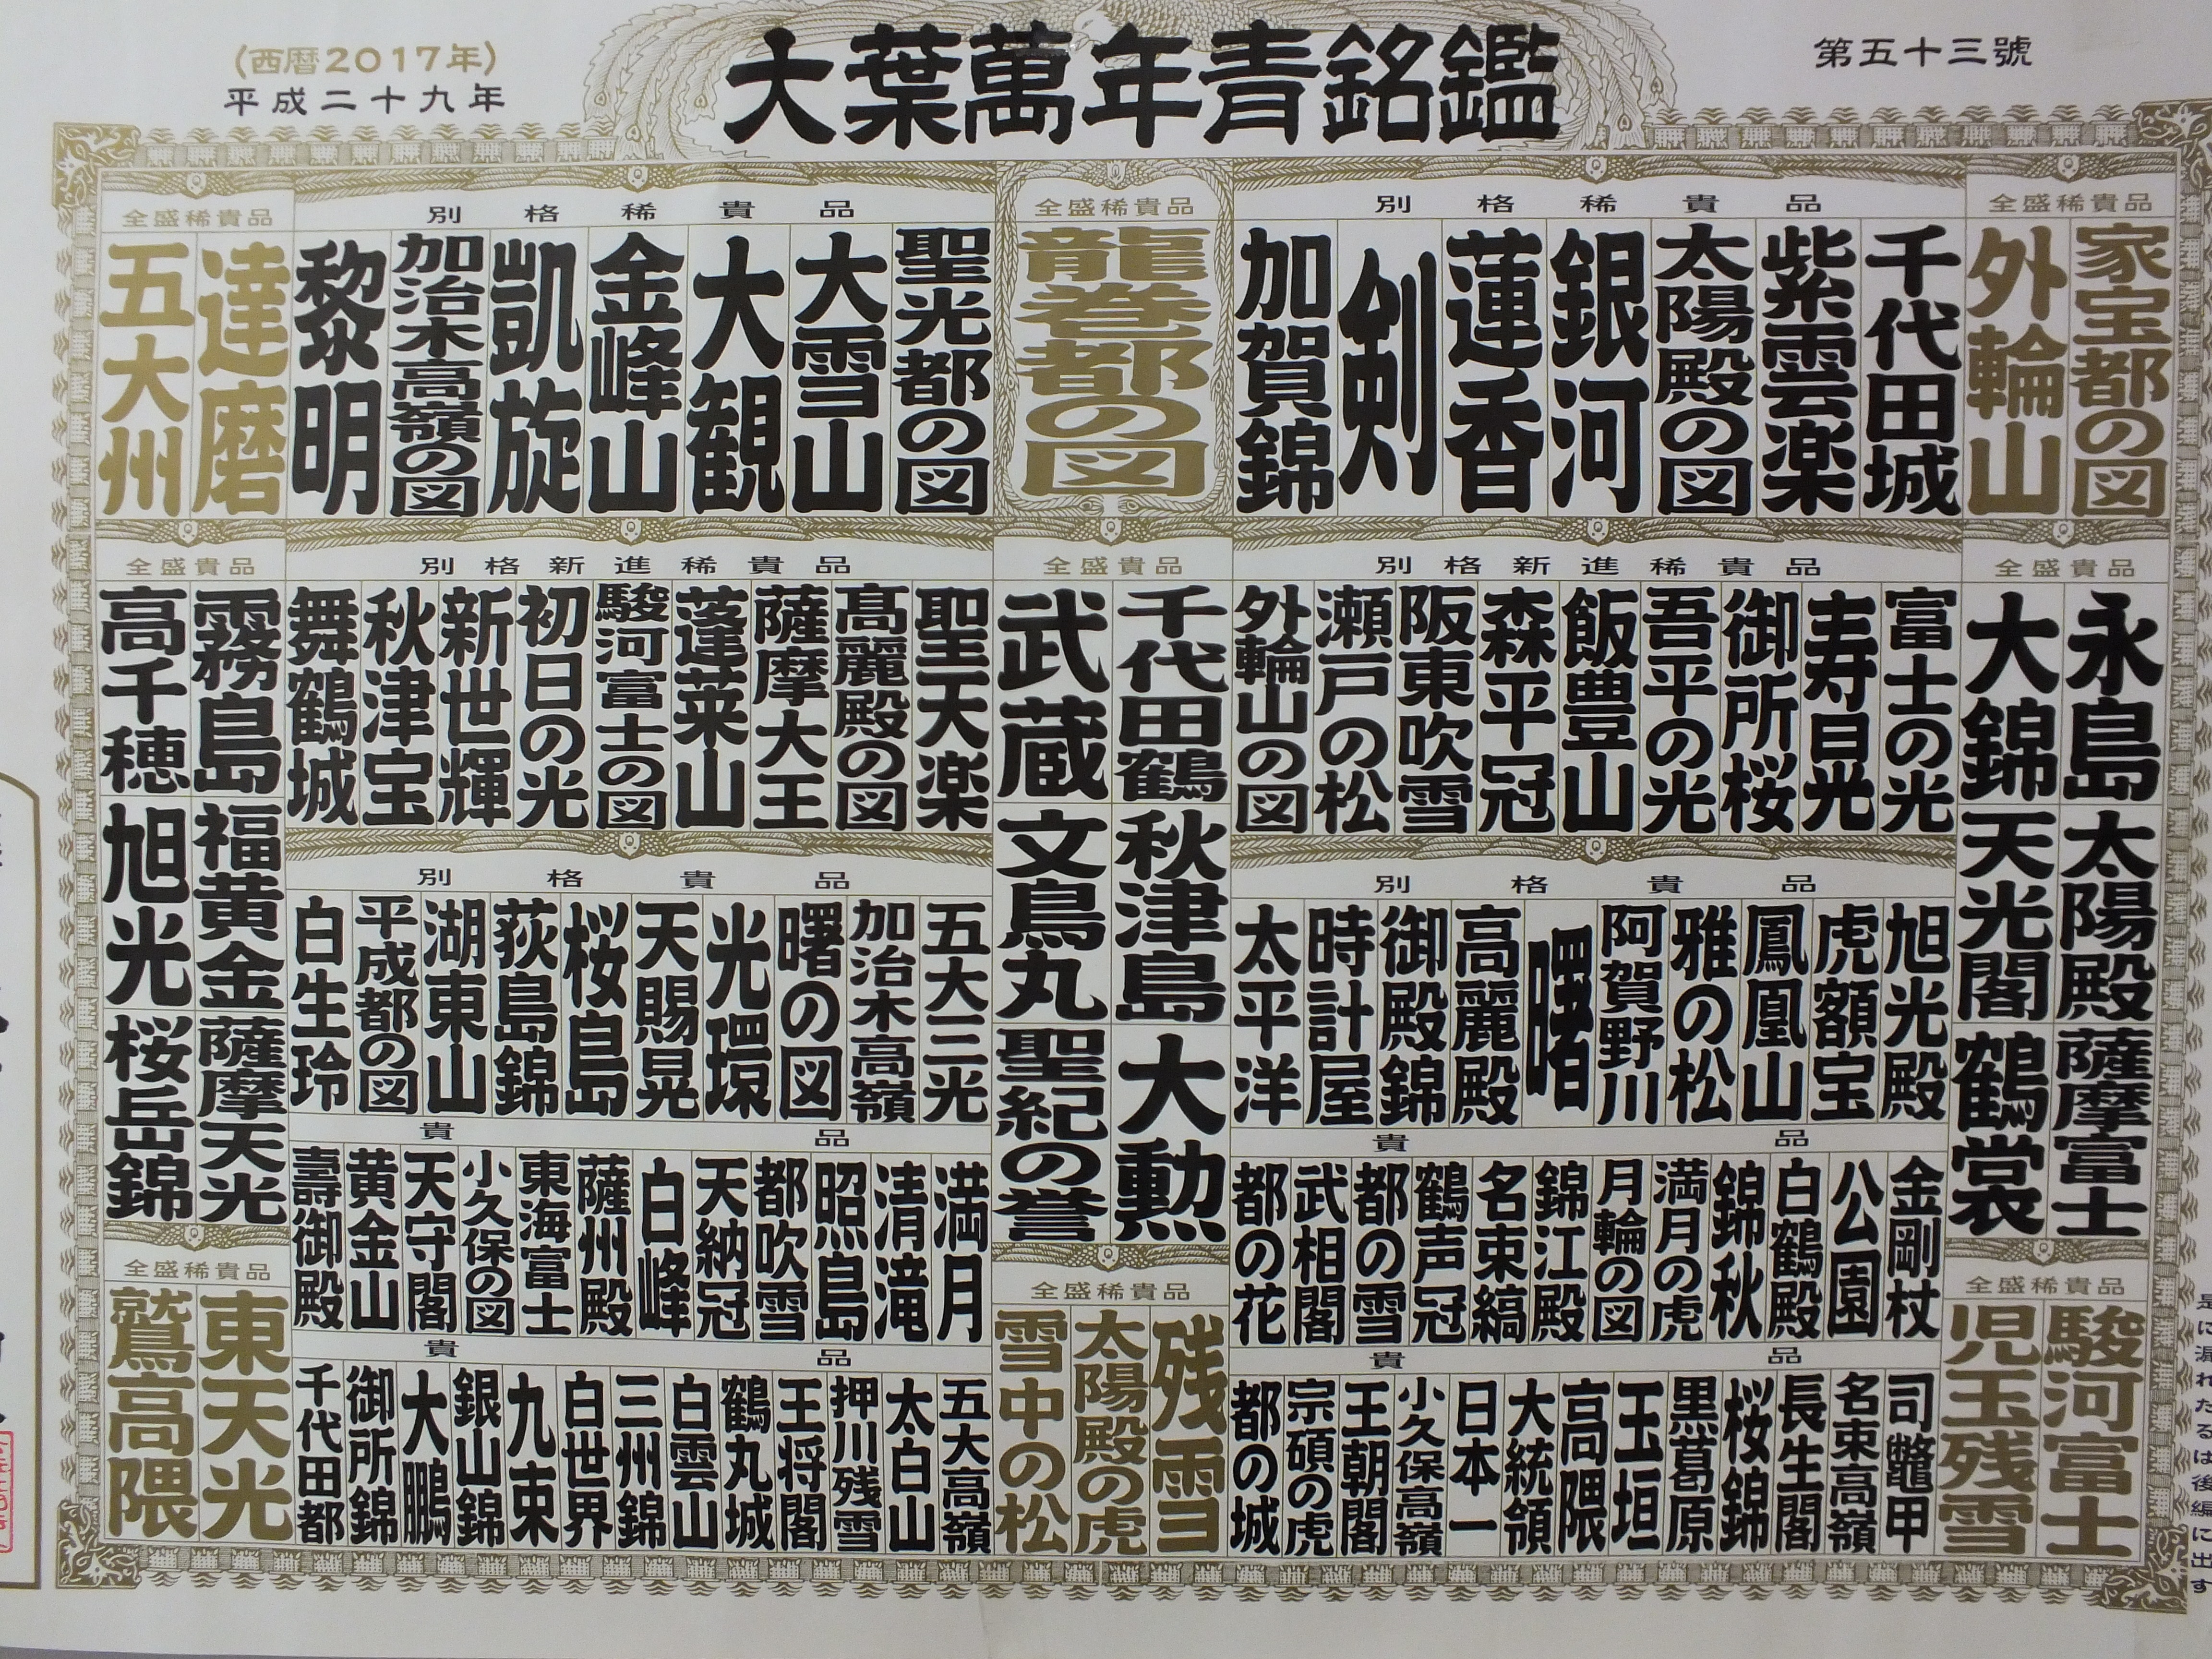 第五十三號
大葉萬年青銘鑑
(西暦2017年)
平成二十九年
全盛稀貴品
家宝都の図
外輪山
別格稀貴品
千代田城
紫雲楽
太陽殿の図
銀河
蓮香
剣
加賀錦
全盛稀貴品
龍巻都の図
別格稀貴品
聖光都の図
大雪山
大観
金峰山
凱旋
加治木高嶺の図
黎明
全盛稀貴品
達磨
五大州
全盛貴品
永島
大錦
太陽殿
天光閣
薩摩富士
鶴裳
別格新進稀貴品
富士の光
寿日光
御所桜
吾平の光
飯豊山
森平冠
阪東吹雪
瀬戸の松
外輪山の図
全盛貴品
千代田鶴
武蔵
秋津島
文鳥丸
大勲
聖紀の誉
別格新進稀貴品
聖天楽
髙麗殿の図
薩摩大王
蓬莱山
駿河富士の図
初日の光
新世輝
秋津宝
舞鶴城
全盛貴品
霧島
高千穂
福黄金
旭光
薩摩天光
桜岳錦
別格貴品
旭光殿
虎額宝
鳳凰山
雅の松
阿賀野川
曙
高麗殿
御殿錦
時計屋
太平洋
別格貴品
五大三光
加治木高嶺
曙の図
光環
天賜晃
桜島
荻島錦
湖東山
平成都の図
白生玲
貴品
金剛杖
公園
白鶴殿
錦秋
満月の虎
月輪の図
錦江殿
名束縞
鶴声冠
都の雪
武相閣
都の花
貴品
満月
清滝
照島
都吹雪
天納冠
白峰
薩州殿
東海富士
小久保の図
天守閣
黄金山
壽御殿
全盛稀貴品
駿河富士
児玉残雪
貴品
司鼈甲
名束高嶺
長生閣
桜錦
黒葛原
玉垣
高隈
大統領
日本一
小久保高嶺
王朝閣
宗碩の虎
都の城
全盛稀貴品
残雪
太陽殿の虎
雪中の松
貴品
五大高嶺
太白山
押川残雪
王将閣
鶴丸城
白雲山
三州錦
白世界
九束
銀山錦
大鵬
御所錦
千代田都
全盛稀貴品
東天光
鷲高隈
是に漏れたるは後編に出す